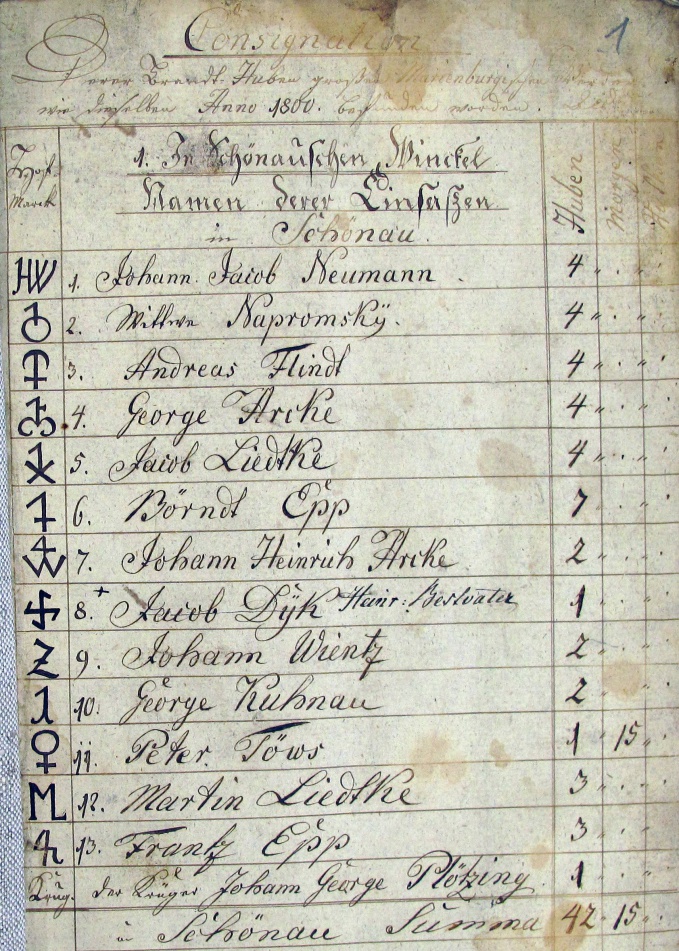 Consignation 1
Derer Brandt-Huben großen Marienburgischen
wie dieselben Anno 1800. befunden worden.
Hoff Marck
1. In Schönauschen Winckel
Namen derer Einsaßen
in Schönau.
Huben Morgen
HW 1. Johann Jacob Neumann 4 " . "
2. Wittwe Napromskÿ. 4 " . "
3. Andreas Flindt 4 " . "
4. George Arcke 4 " . "
5. Jacob Liedtke 4 " . "
6. Börndt Epp 7 " . "
7. Johann Heinrich Arcke 2 " . "
8. + Jacob Dÿk Heinr: Bestvater 1 " . "
9. Johann Wientz 2 " . "
10. George Kuhnau 2 " . "
11. Peter Töws 1 15 "
12. Martin Liedtke 3 " . "
13. Frantz Epp 3 " . "
Krug. der Krüger Johann George Plötzing 1
in Schönau Summa 42 15 "